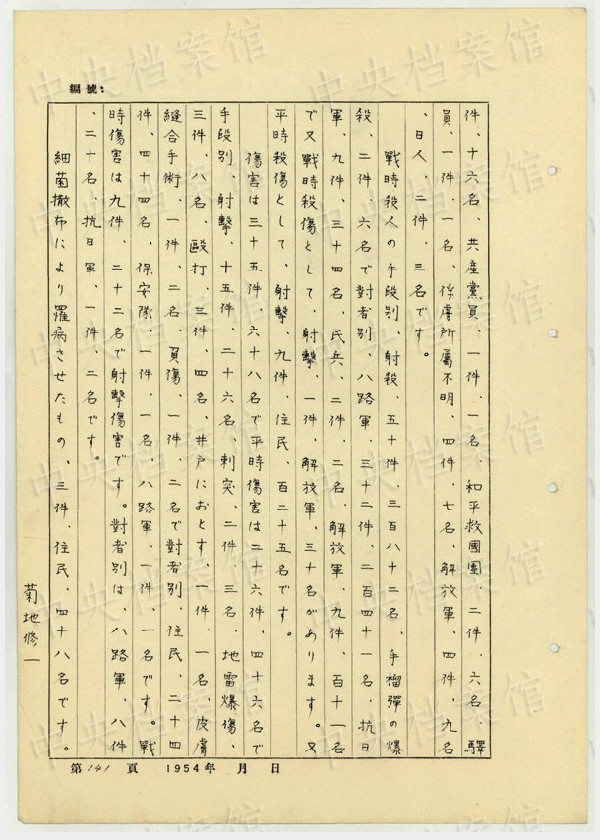 編號：
件、十六名、共産黨員、一件、一名、和平救國團、二件、六名、驛
員、一件、一名、俘虜所屬不明、四件、七名、解放軍、四件、九名
、日人、二件、三名です。
戰時殺人の手段別、射殺、五十件、三百八十二名、手榴彈の爆
殺、二件、六名で對者別、八路軍、三十二件、二百四十一名、抗日
軍、九件、三十四名、民兵、二件、二名、解放軍、九件、百十一名
で又戰時殺傷として、射擊、一件、解放軍、三十名があります。又
平時殺傷として、射擊、九件、住民、百二十五名です。
傷害は三十五件、六十八名で平時傷害は二十六件、四十六名で
手段別、射擊、十五件、二十六名、刺突、二件、三名、地雷爆傷、
三件、八名、毆打、三件、四名、井戸におとす、一件、一名、皮膚
縫合手術、一件、二名、負傷、一件、二名で對者別、住民、二十四
件、四十四名、保安隊、一件、一名、八路軍、一件、一名です。戰
時傷害は九件、二十二名で射擊傷害です。對者別は、八路軍、八件
、二十名、抗日軍、一件、二名です。
細菌撒布により罹病させたもの、三件、住民、四十八名です。
菊地修一
第141頁 1954年 月 日
中央档案馆